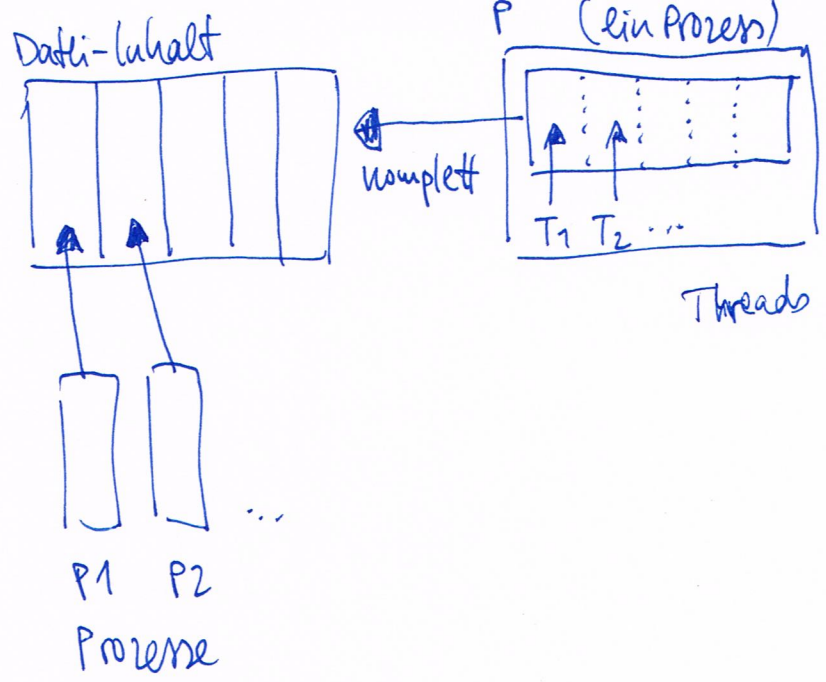 Datei-Inhalt
P (ein Prozess)
komplett
T1 T2 ...
Threads
...
P1 P2
Prozesse